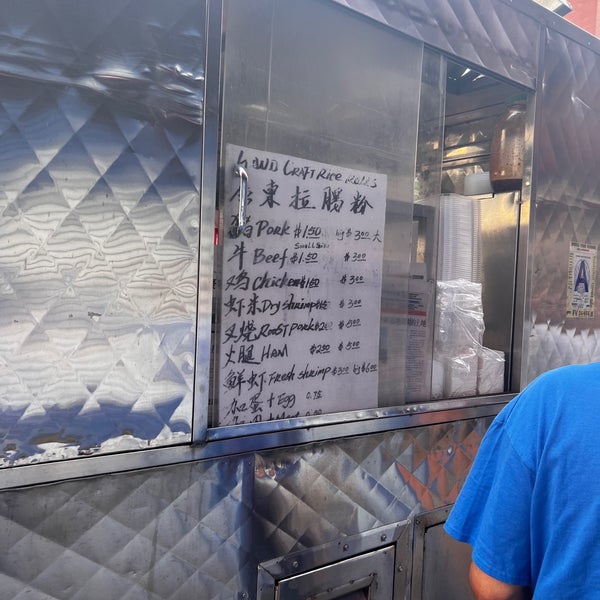 HAND CRAFT RICE ROLLS
東拉腸粉
Pork $1.50 big $3.00 大
Small Size
牛 Beef $1.50 $3.00
鸡 Chicken $1.50 $3.00
虾米 Dry Shrimp $3.00
叉烧 Roost Pork $2.00 $5.00
火腿 HAM $2.50 $5.00
鮮虾 Fresh shrimp $3.00 big $6.00
加蛋 + Egg 0.75
A